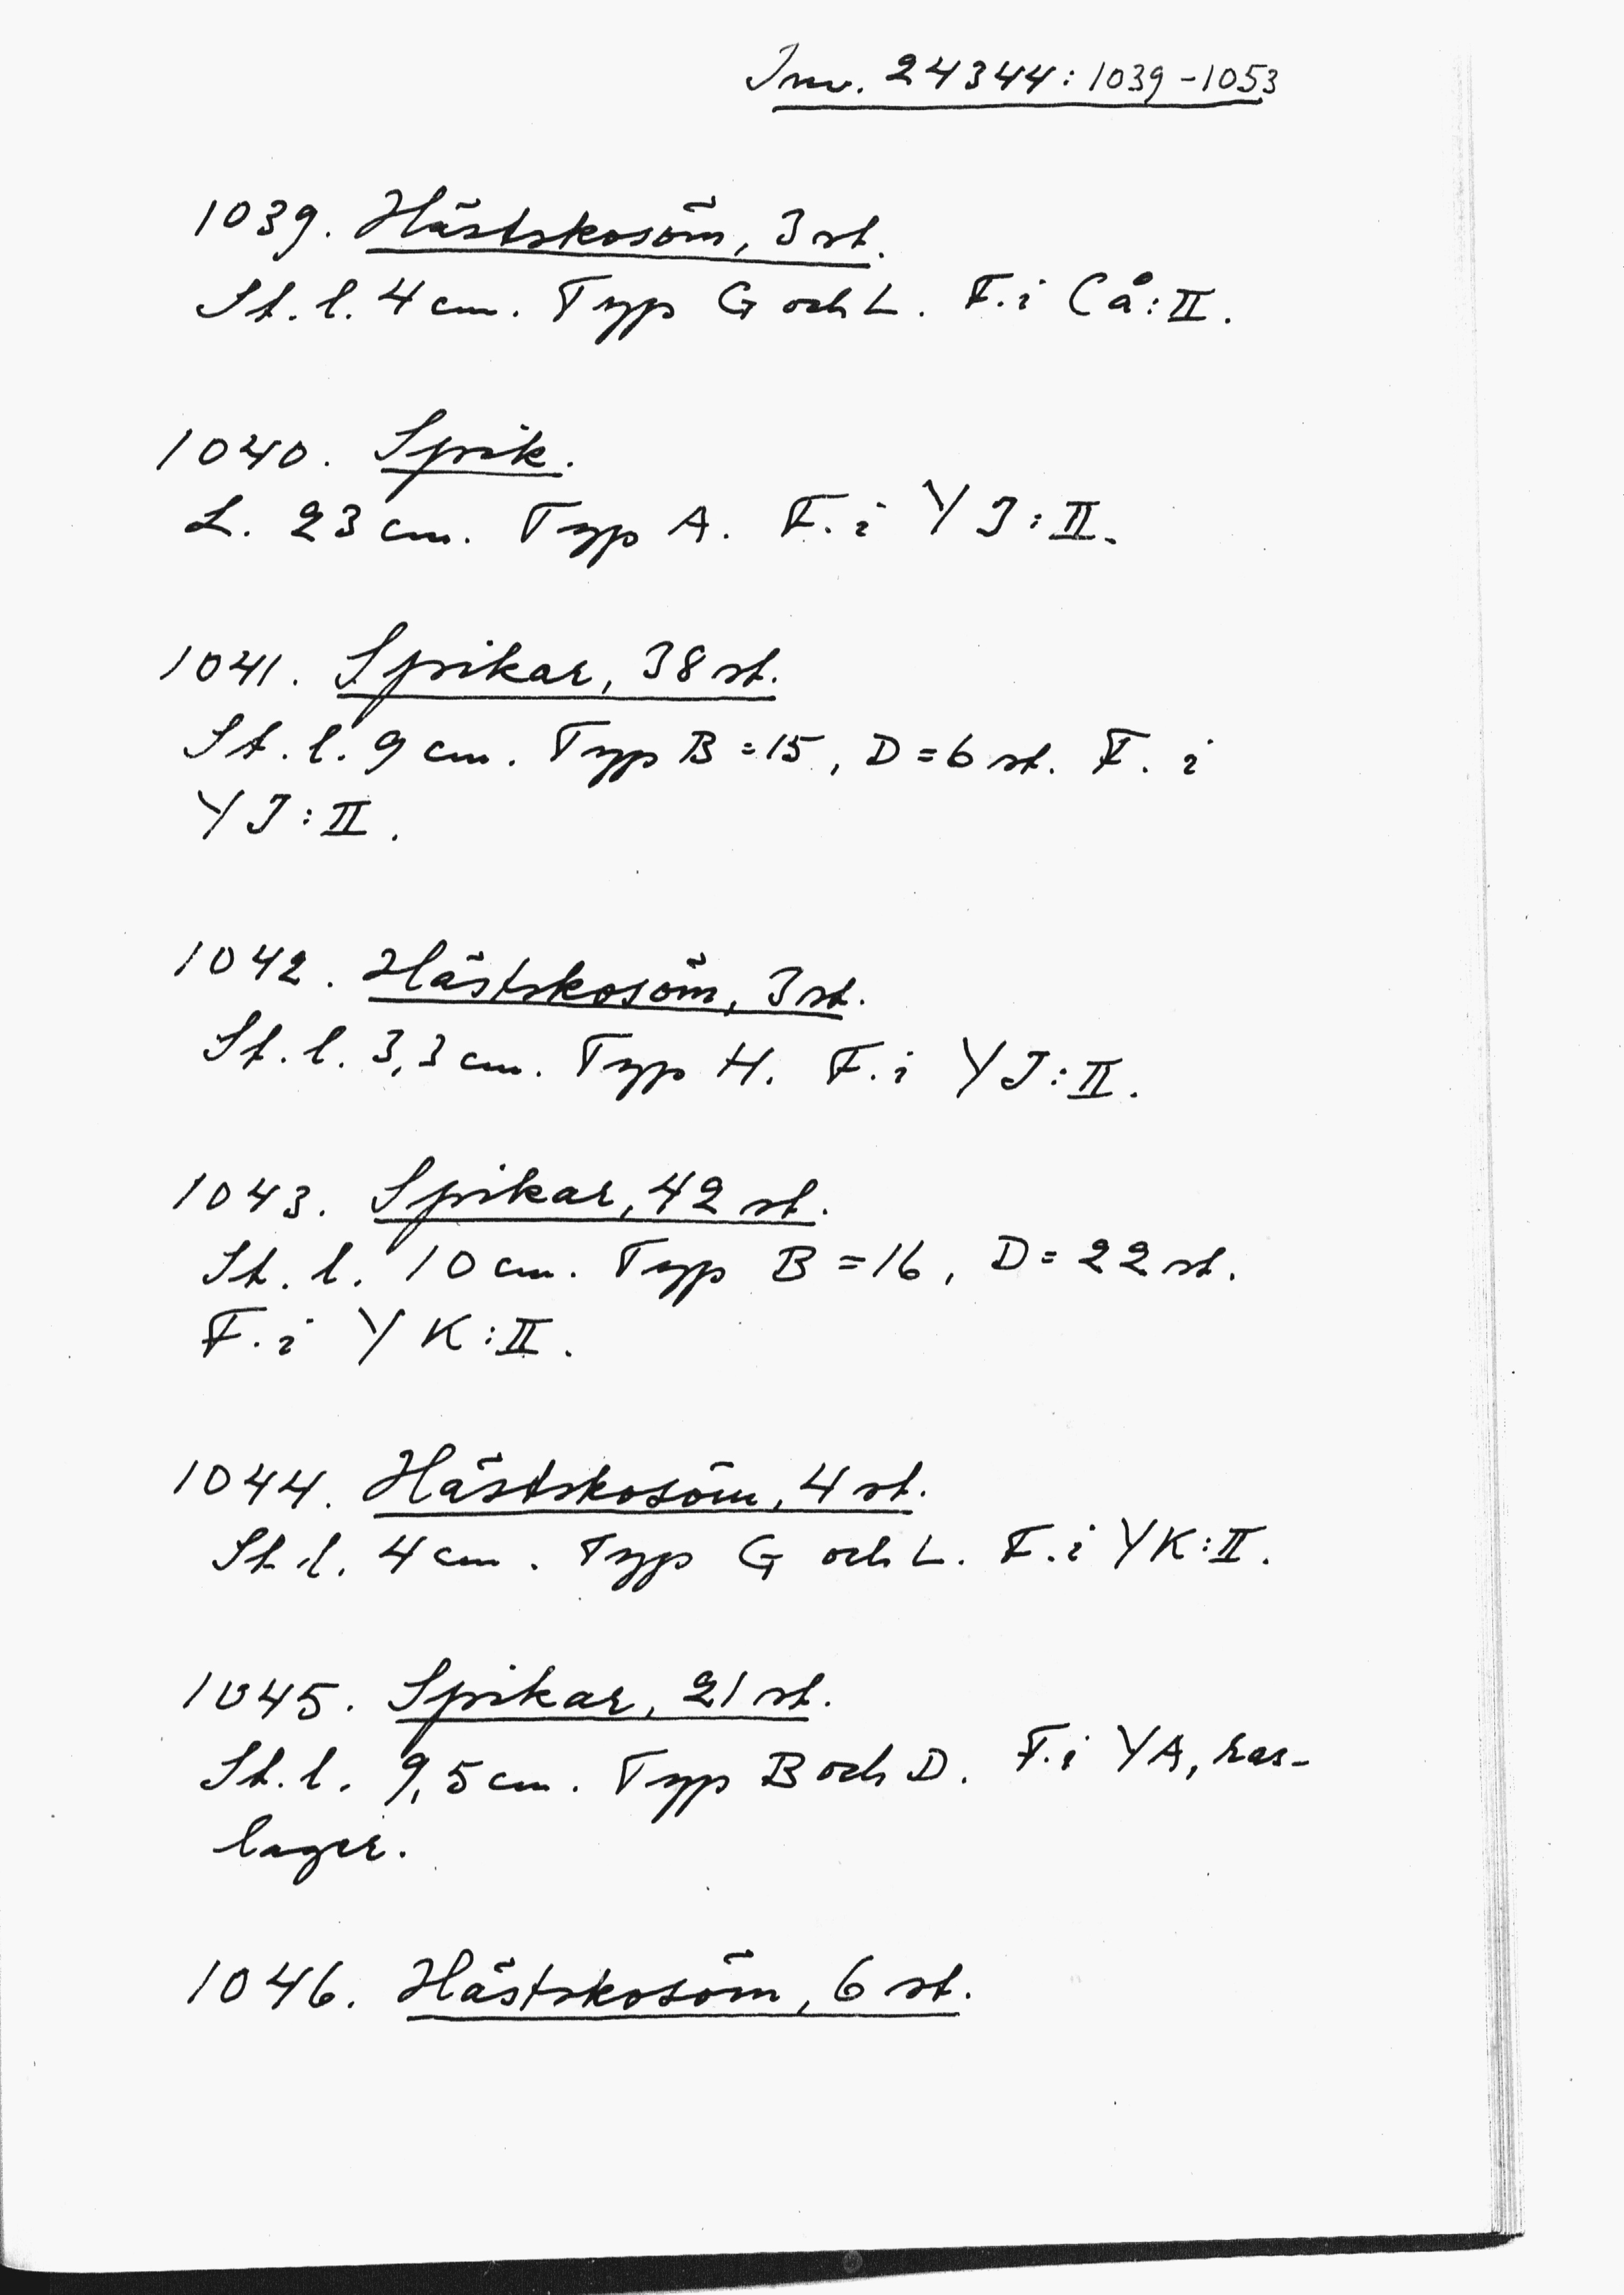 Inv. 24344:1039-1053
1039. Hästskosöm, 3 st.
St. l. 4 cm. Typ G och L. F. i Cå:II.
1040. Spik.
L. 23 cm. Typ A. F. i YJ:II.
1041. Spikar, 38 st.
St. l. 9 cm. Typ B=15, D=6 st. F. i
YJ:II.
1042. Hästskosöm, 3 st.
St. l. 3,3 cm. Typ H. F. i YJ:II.
1043. Spikar, 42 st.
St. l. 10 cm. Typ B=16, D=22 st.
F. i YK:II.
1044. Hästskosöm, 4 st.
St. l. 4 cm. Typ G och L. F. i YK:II.
1045. Spikar, 21 st.
St. l. 9,5 cm. Typ B och D. F. i YA, ras-
lager.
1046. Hästskosöm, 6 st.